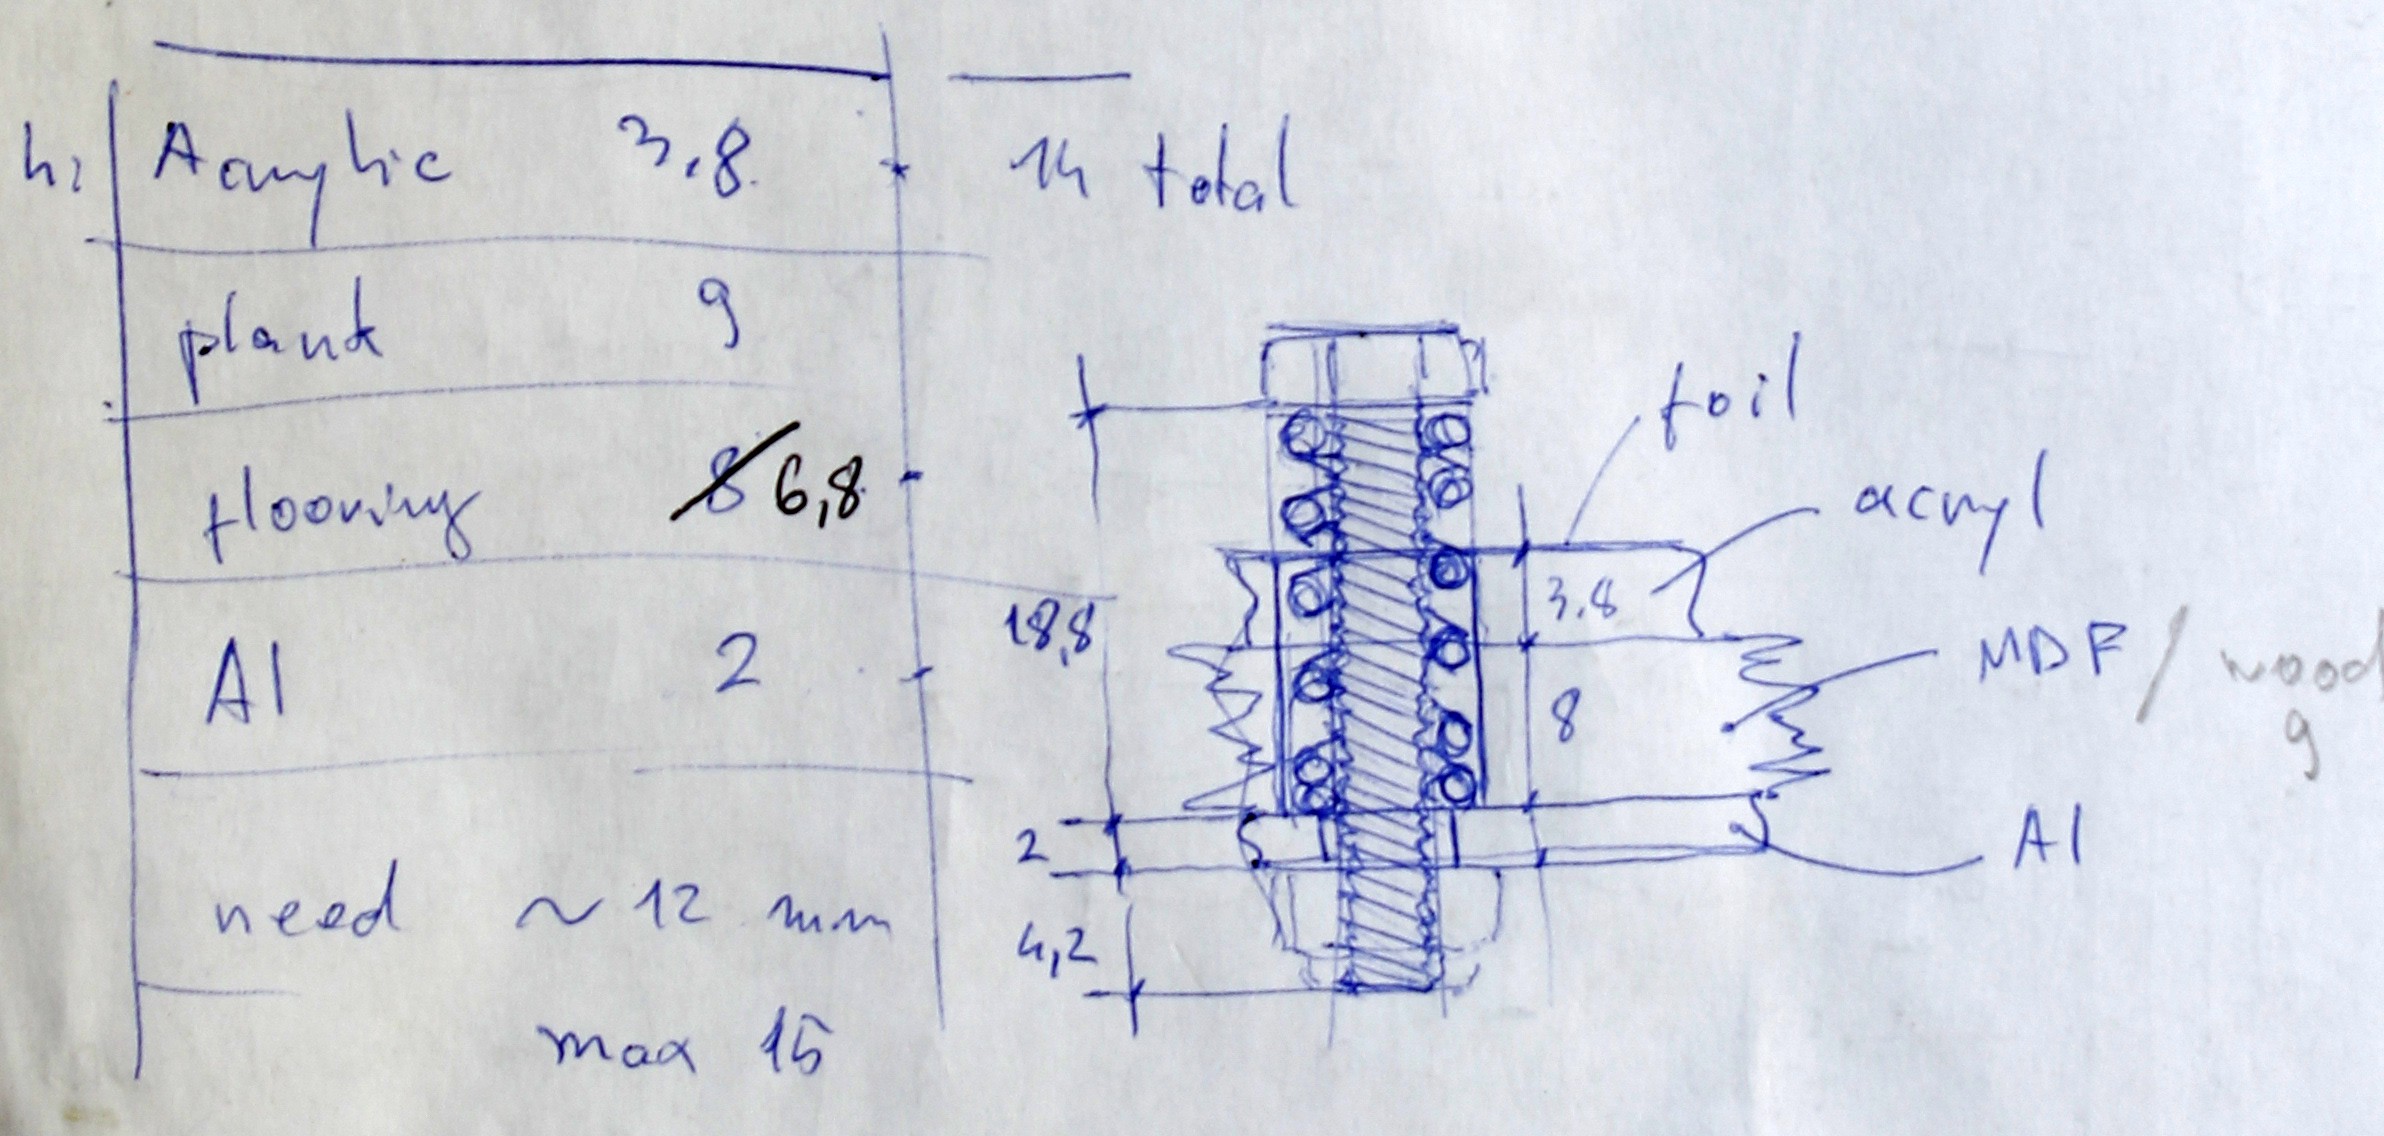 h: Acrylic 3,8 14 total
plank 9
flooring 8 6,8
Al 2
need ~ 12 mm
max 15
foil
acryl
18,8
3.8
MDF / wood
9
8
2
Al
4,2